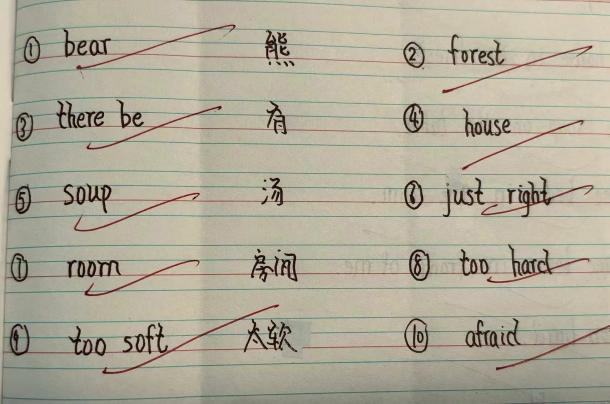 ① bear 熊 ② forest
③ there be 有 ④ house
⑤ soup 汤 ⑥ just right
⑦ room 房间 ⑧ too hard
⑨ too soft 太软 ⑩ afraid